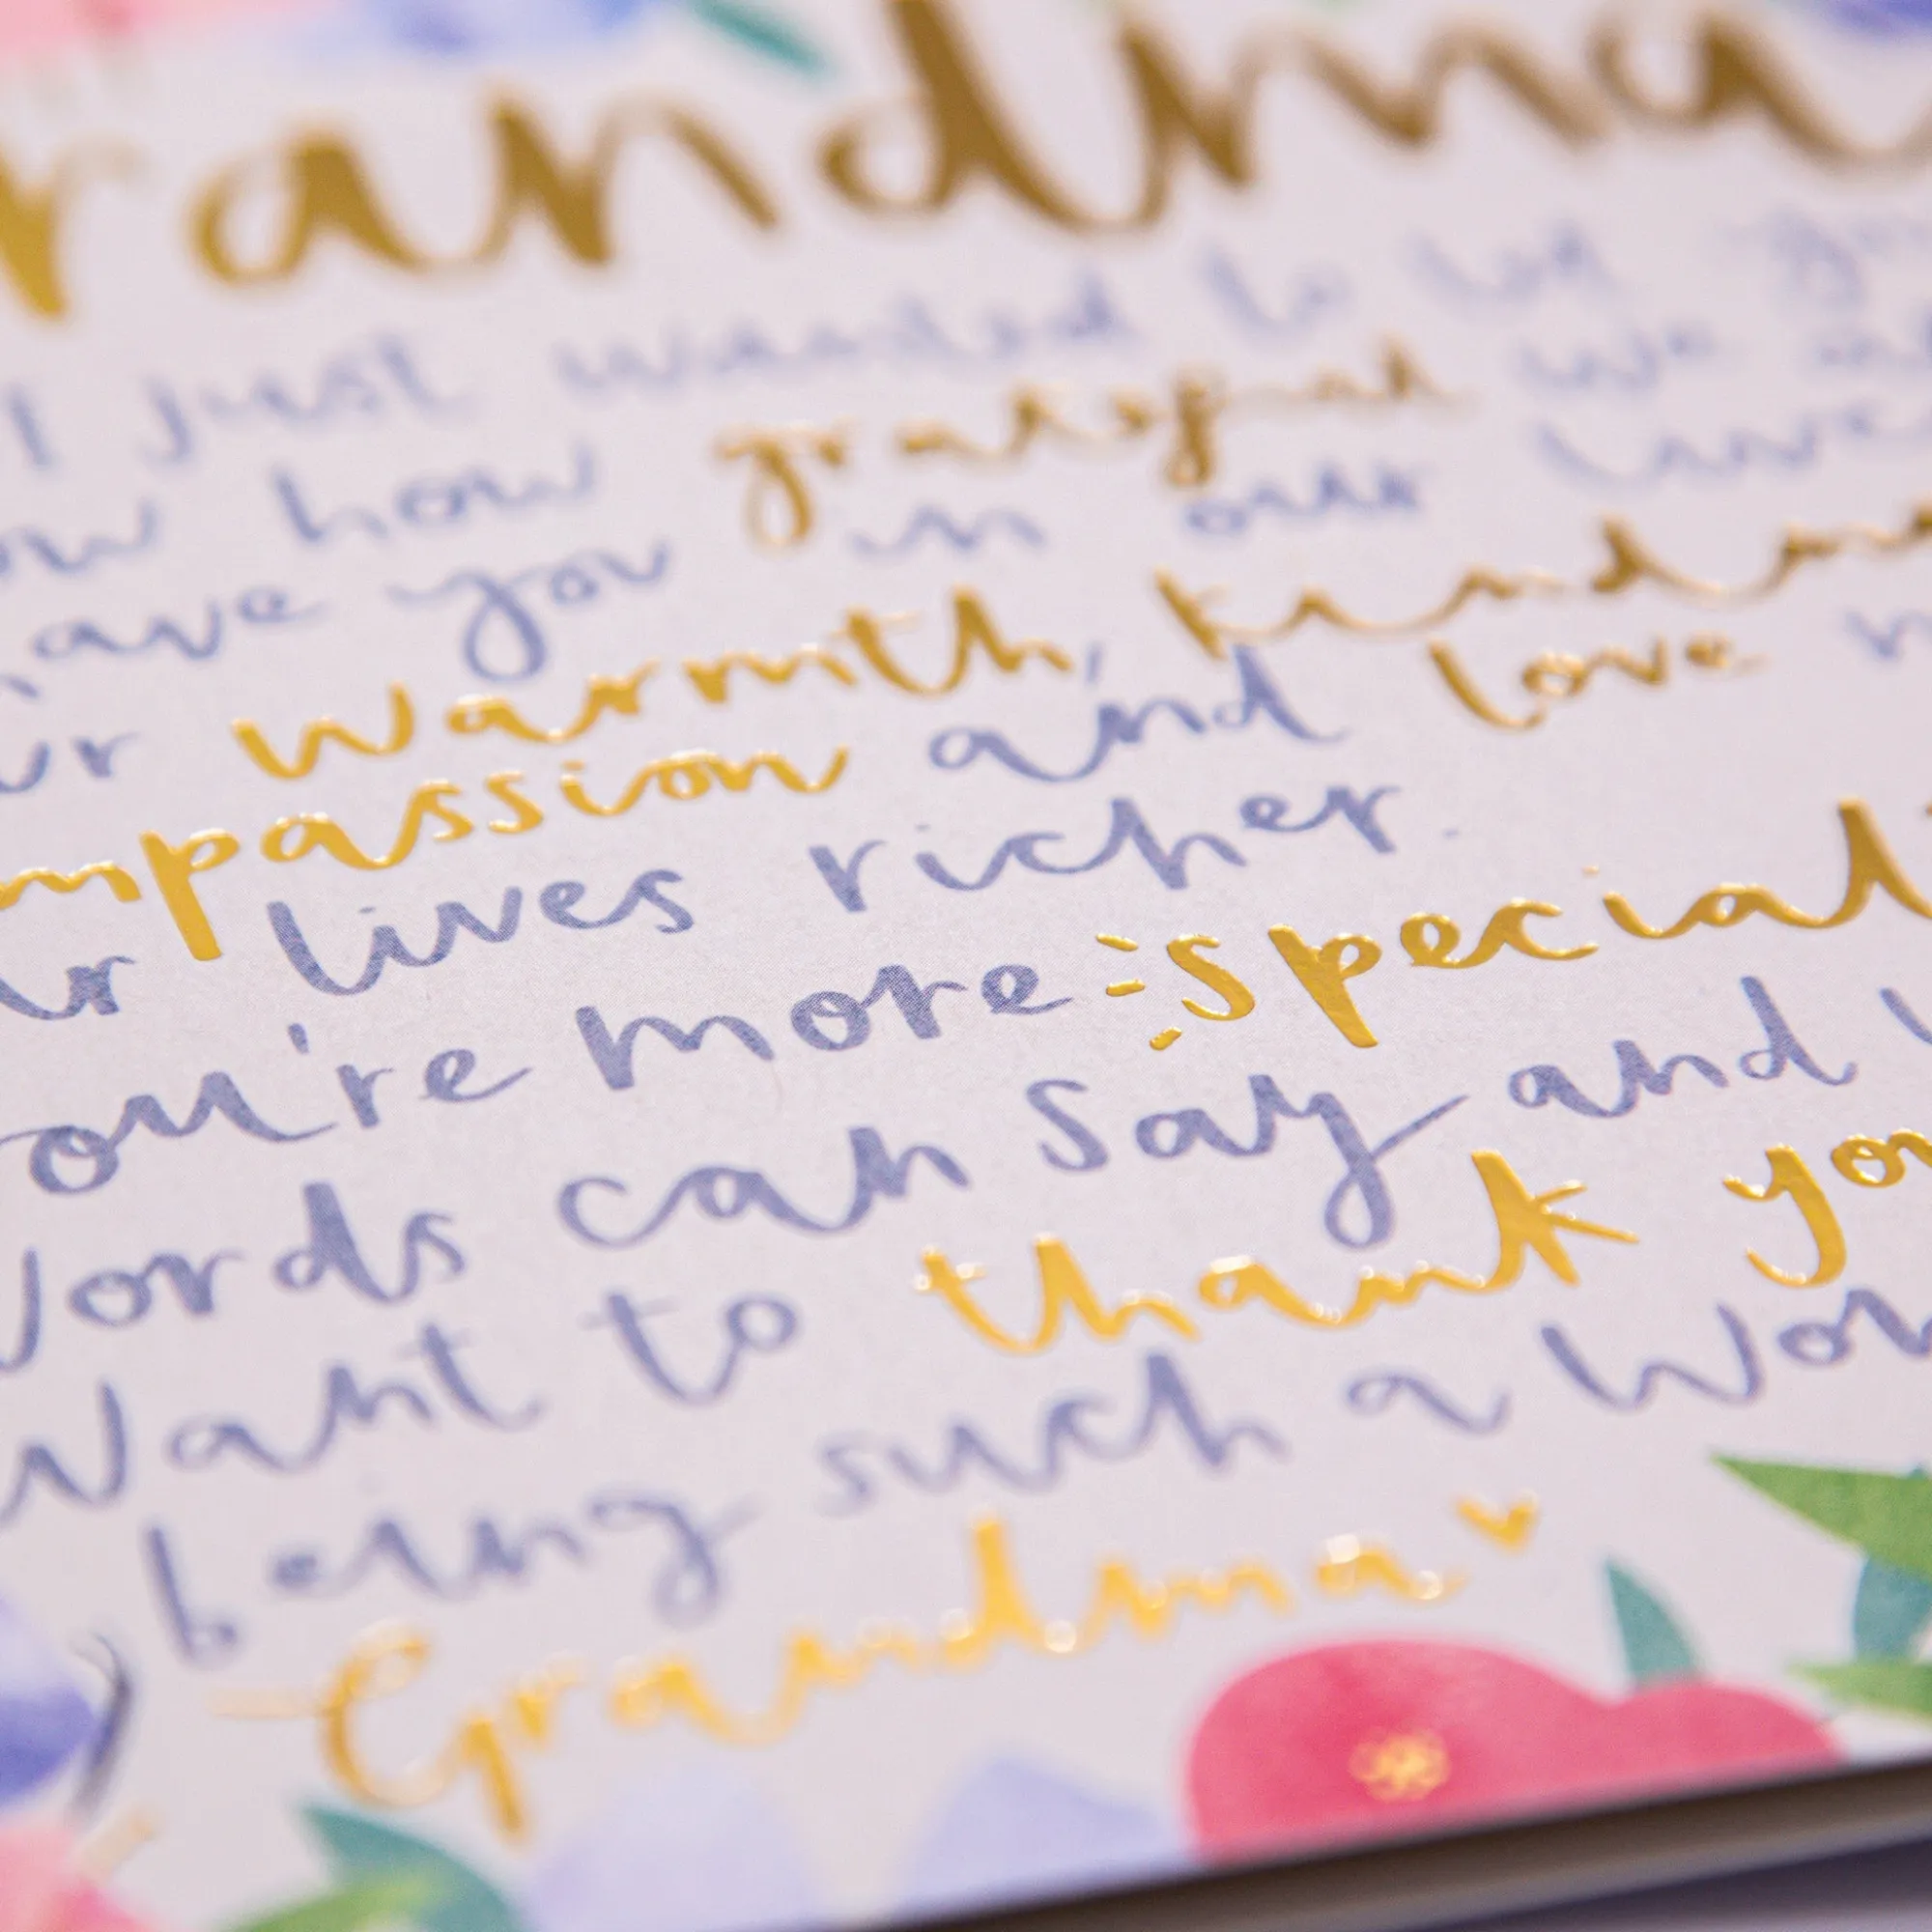 randma
I just wanted to let you
ow how grateful we are
have you in our lives
ur warmth, kindne
mpassion and love m
ur lives richer.
ou're more special t
Words can say and w
Want to thank you
being such a Won
Grandma